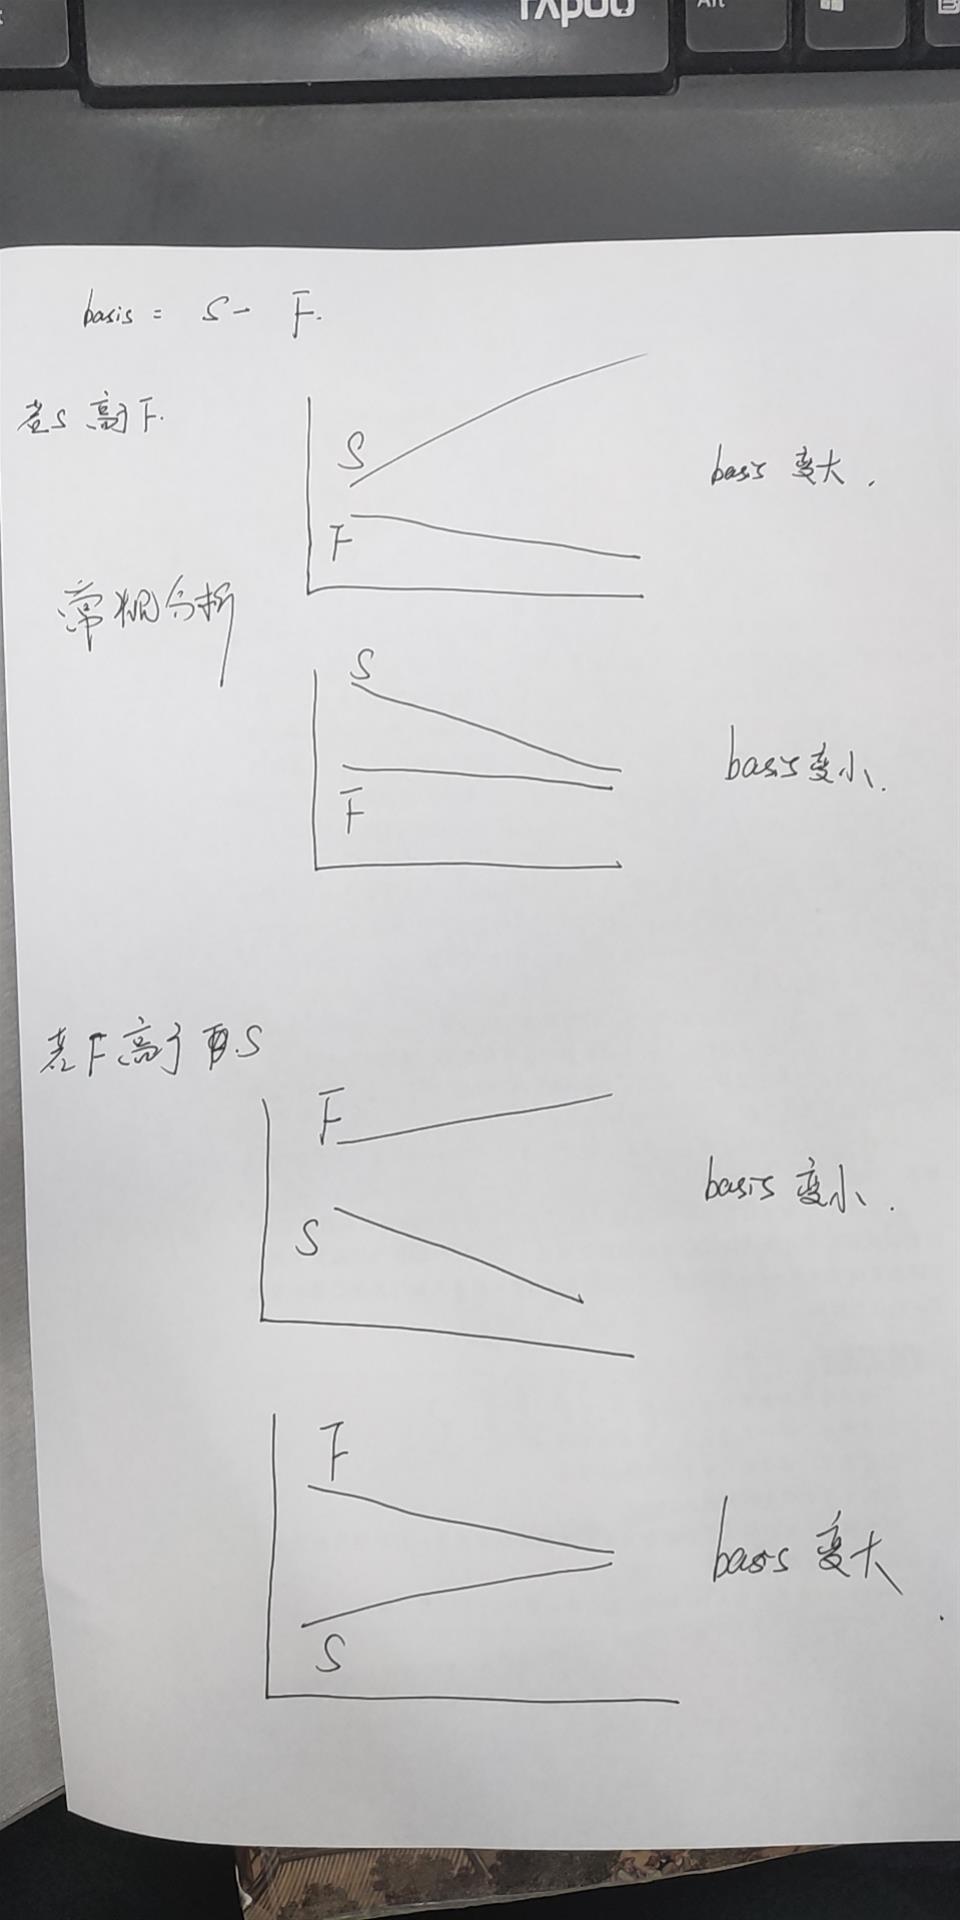 rapoo
Alt
basis = S - F.
若S高于F.
S
F
basis 变大.
常规分析
S
F
basis变小.
若F高于S
F
S
basis 变小.
F
S
basis 变大.